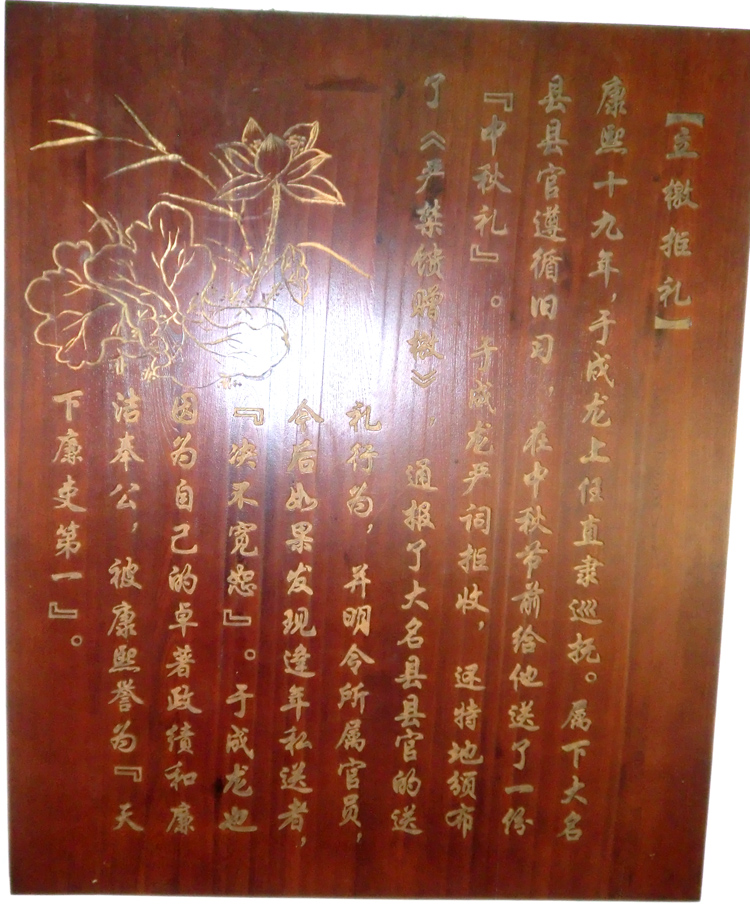 【立檄拒礼】
康熙十九年，于成龙上任直隶巡抚。属下大名
县县官遵循旧习，在中秋节前给他送了一份
『中秋礼』。于成龙严词拒收，还特地颁布
了《严禁馈赠檄》，通报了大名县县官的送
礼行为，并明令所属官员，
今后如果发现逢年私送者，
『决不宽恕』。于成龙也
因为自己的卓著政绩和廉
洁奉公，被康熙誉为『天
下廉吏第一』。